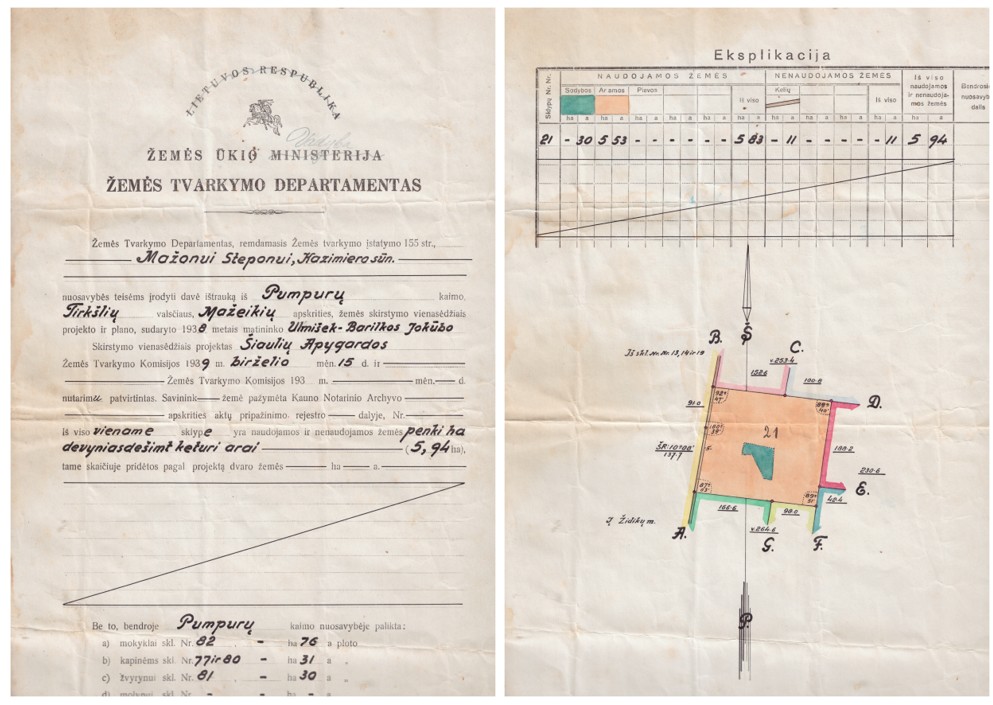 LIETUVOS RESPUBLIKA
Valdyba
ŽEMĖS ŪKIO MINISTERIJA
ŽEMĖS TVARKYMO DEPARTAMENTAS
Žemės Tvarkymo Departamentas, remdamasis Žemės tvarkymo įstatymo 155 str.,
Mažonui Steponui, Kazimiero sūn.
nuosavybės teisėms įrodyti davė ištrauką iš Pumpurų kaimo,
Tirkšlių valsčiaus, Mažeikių apskrities, žemės skirstymo vienasėdžiais
projekto ir plano, sudaryto 1938 metais matininko Ulmišek-Barilkos Jokūbo
Skirstymo vienasėdžiais projektas Šiaulių Apygardos
Žemės Tvarkymo Komisijos 1939 m. birželio mėn. 15 d. ir
Žemės Tvarkymo Komisijos 193 m. mėn. d.
nutarimu patvirtintas. Savinink žemė pažymėta Kauno Notarinio Archyvo
apskrities aktų pripažinimo registro dalyje, Nr.
Iš viso viename sklype yra naudojamos ir nenaudojamos žemės penki ha
devyniasdešimt keturi arai (5,94 ha),
tame skaičiuje pridėtos pagal projektą dvaro žemės ha a.
Be to, bendroje Pumpurų kaimo nuosavybėje palikta:
a) mokyklai skl. Nr. 82 - ha 76 a ploto
b) kapinėms skl. Nr. 77 ir 80 - ha 31 a „
c) žvyrynui skl. Nr. 81 - ha 30 a „
d) molynui skl. Nr. - - ha - a „
Eksplikacija
Sklypų Nr. Nr.
NAUDOJAMOS ŽEMĖS
NENAUDOJAMOS ŽEMĖS
Iš viso naudojamos ir nenaudojamos žemės
Bendrosios nuosavybės dalis
Sodybos Ariamos Pievos Iš viso Kelių Iš viso
ha a ha a ha a ha a ha a ha a ha a ha a ha a ha a
21 - 30 5 53 - - - - - - 5 83 - 11 - - - - - 11 5 94
Š
B.
C.
Iš skl. Nr. Nr. 13, 14 ir 19
v.253.4
152.6
100.8
D.
91.0
21
188.2
ŠR:10°00'
137.7
230.6
E.
42.4
166.6
98.0
Į Židikų m.
A.
v.264.6
G.
F.
P.